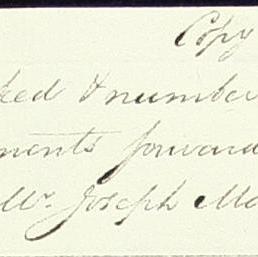 Copy
ked & number
ments forward
Mr. Joseph Ma